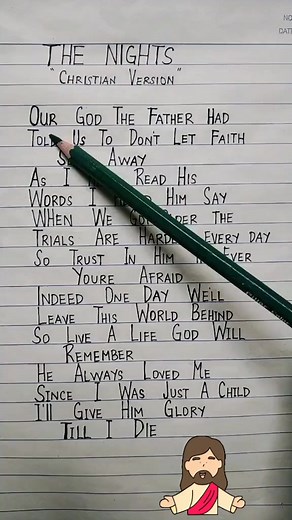 NO
DATE
THE NIGHTS
"CHRISTIAN VERSION"
OUR GOD THE FATHER HAD
TOLD US TO DON'T LET FAITH
AWAY
AS I READ HIS
WORDS I HIM SAY
WHEN WE OLDER THE
TRIALS ARE HARDER EVERY DAY
SO TRUST IN HIM EVER
YOURE AFRAID
INDEED ONE DAY WE'LL
LEAVE THIS WORLD BEHIND
SO LIVE A LIFE GOD WILL
REMEMBER
HE ALWAYS LOVED ME
SINCE I WAS JUST A CHILD
I'LL GIVE HIM GLORY
TILL I DIE